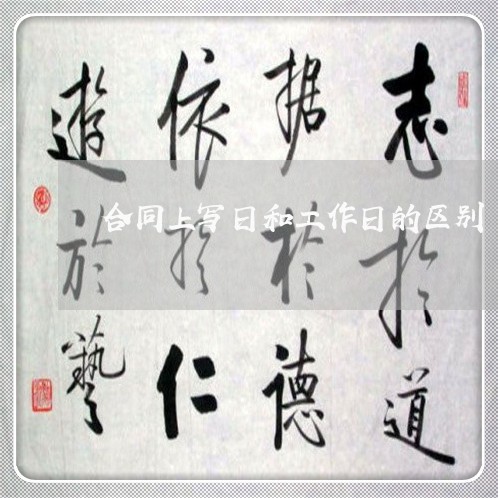 志於道
据於德
依於仁
遊於藝
合同上写日和工作日的区别